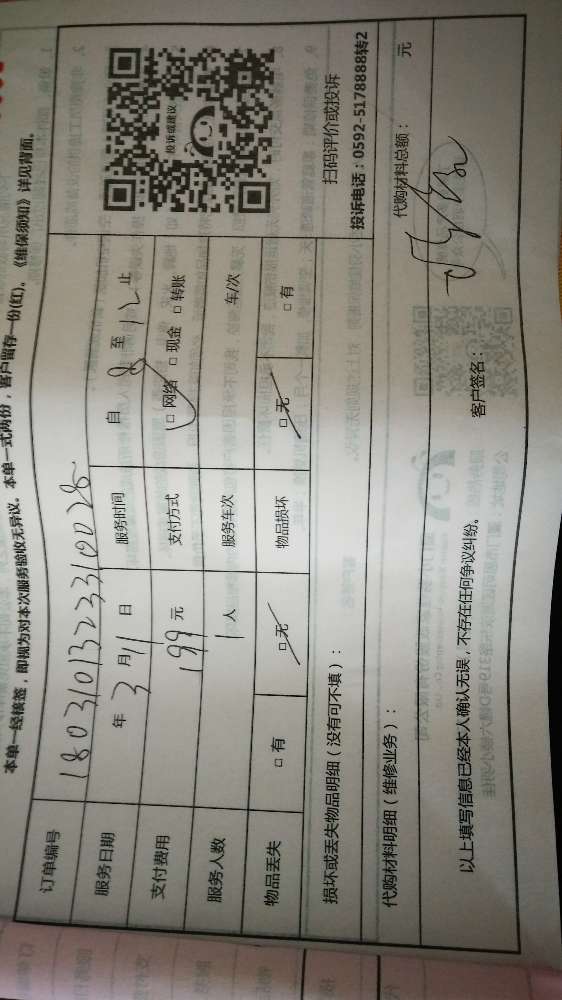 本单一经核签，即视为对本次服务验收无异议。本单一式两份，客户留存一份(红)。《维保须知》详见背面。
订单编号 180310132233100028
服务日期 年 3 月 11 日 服务时间 自 8 至 12 止
支付费用 199 元 支付方式 □ 网络 □ 现金 □ 转账
服务人数 1 人 服务车次 车/次
物品丢失 □ 有 □ 无 物品损坏 □ 无 □ 有
投诉或建议
扫码评价或投诉
投诉电话：0592-5178888转2
损坏或丢失物品明细（没有可不填）：
代购材料明细（维修业务）： 代购材料总额： 元
以上填写信息已经本人确认无误，不存在任何争议纠纷。 客户签名：